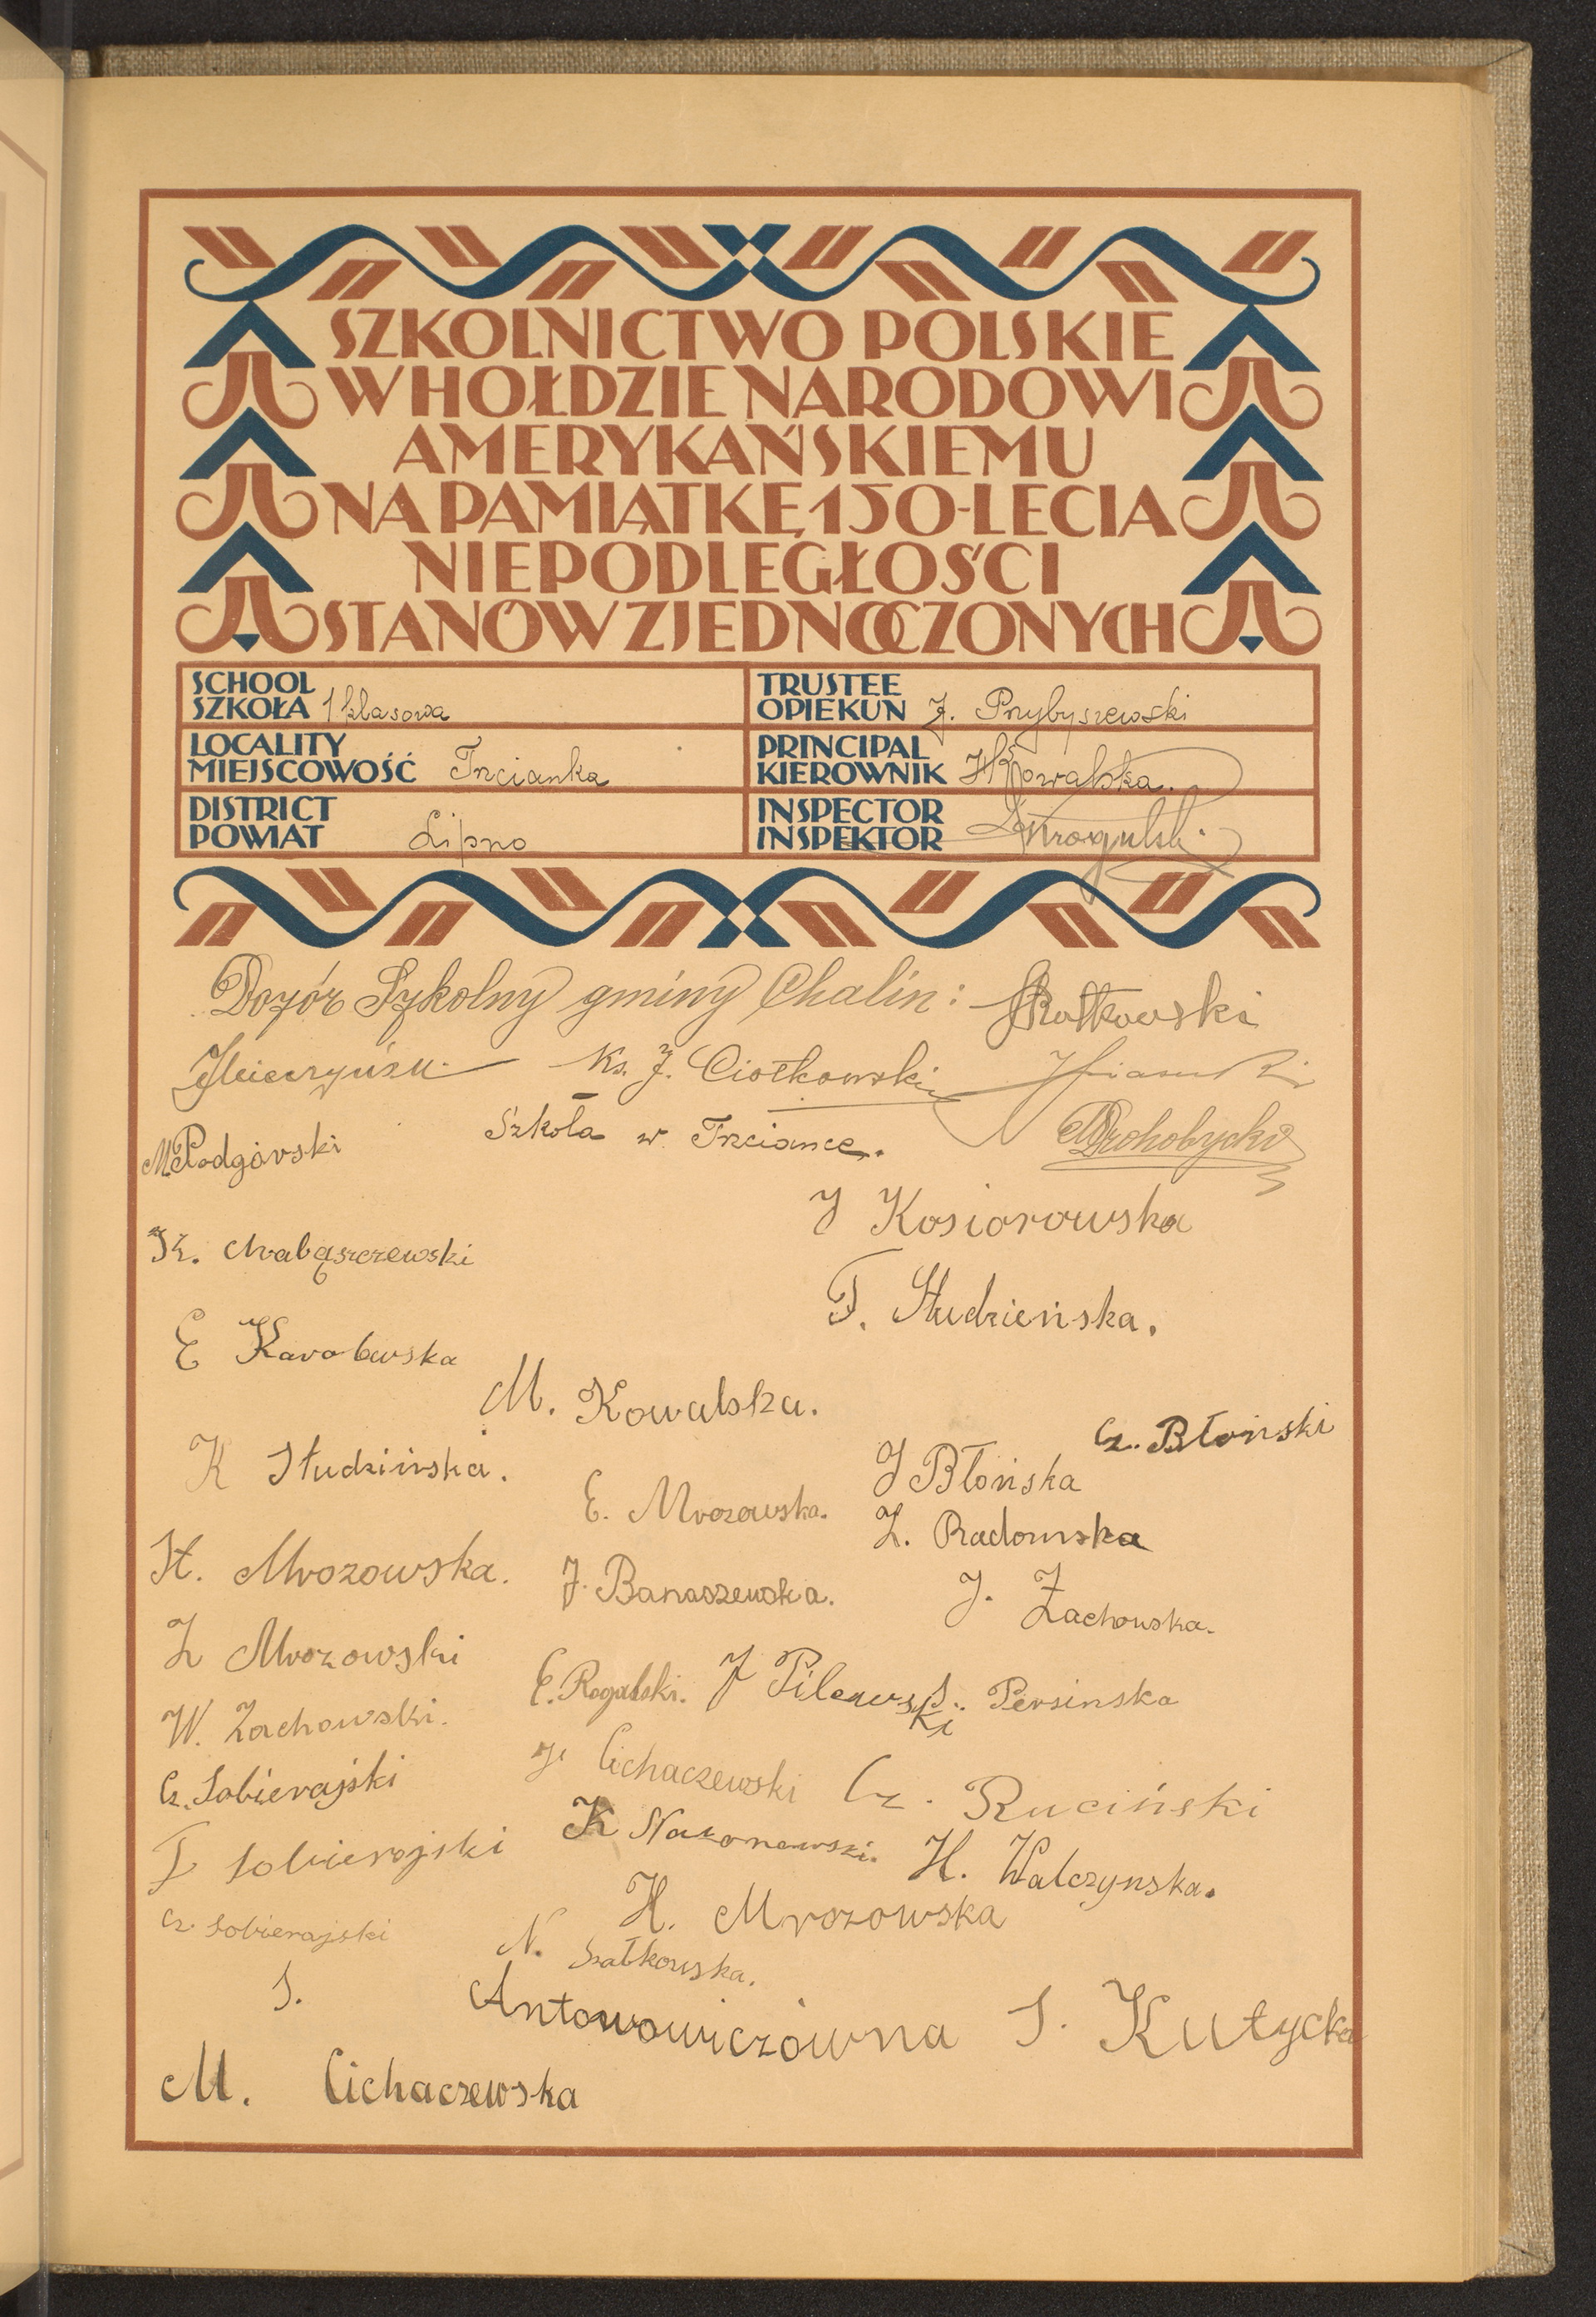 SZKOLNICTWO POLSKIE
W HOŁDZIE NARODOWI
AMERYKAŃSKIEMU
NA PAMIĄTKĘ 150-LECIA
NIEPODLEGŁOŚCI
STANÓW ZJEDNOCZONYCH
SCHOOL
SZKOŁA 1 klasowa
TRUSTEE
OPIEKUN J. Przybyszewski
LOCALITY
MIEJSCOWOŚĆ Trcianka
PRINCIPAL
KIEROWNIK Kowalska.
DISTRICT
POWIAT Lipno
INSPECTOR
INSPEKTOR
Dozór Szkolny gminy Chalin: Rutkowski
Ks. J. Ciotkowski
Szkoła w Trciance.
Drohobycki
M Podgórski
J Kosiorowska
K. Chrabąszczewski
T. Studzieńska.
E Karolewska
M. Kowalska.
Cz. Błoński
K Studzińska.
J Błońska
E. Mrozowska.
Z. Radomska
H. Mrozowska.
J. Banaszewska.
J. Zachowska.
Z Mrozowski
E. Rogalski.
J Pilewski
S. Persinska
W. Zachowski.
Cichaczewski
Cz. Ruciński
Cz. Sobierajski
K
H. Walczynska.
T Sobierajski
H. Mrozowska
Cz. Sobierajski
N. Szatkowska.
S. Antonowiczówna
S. Kutycka
M. Cichaczewska